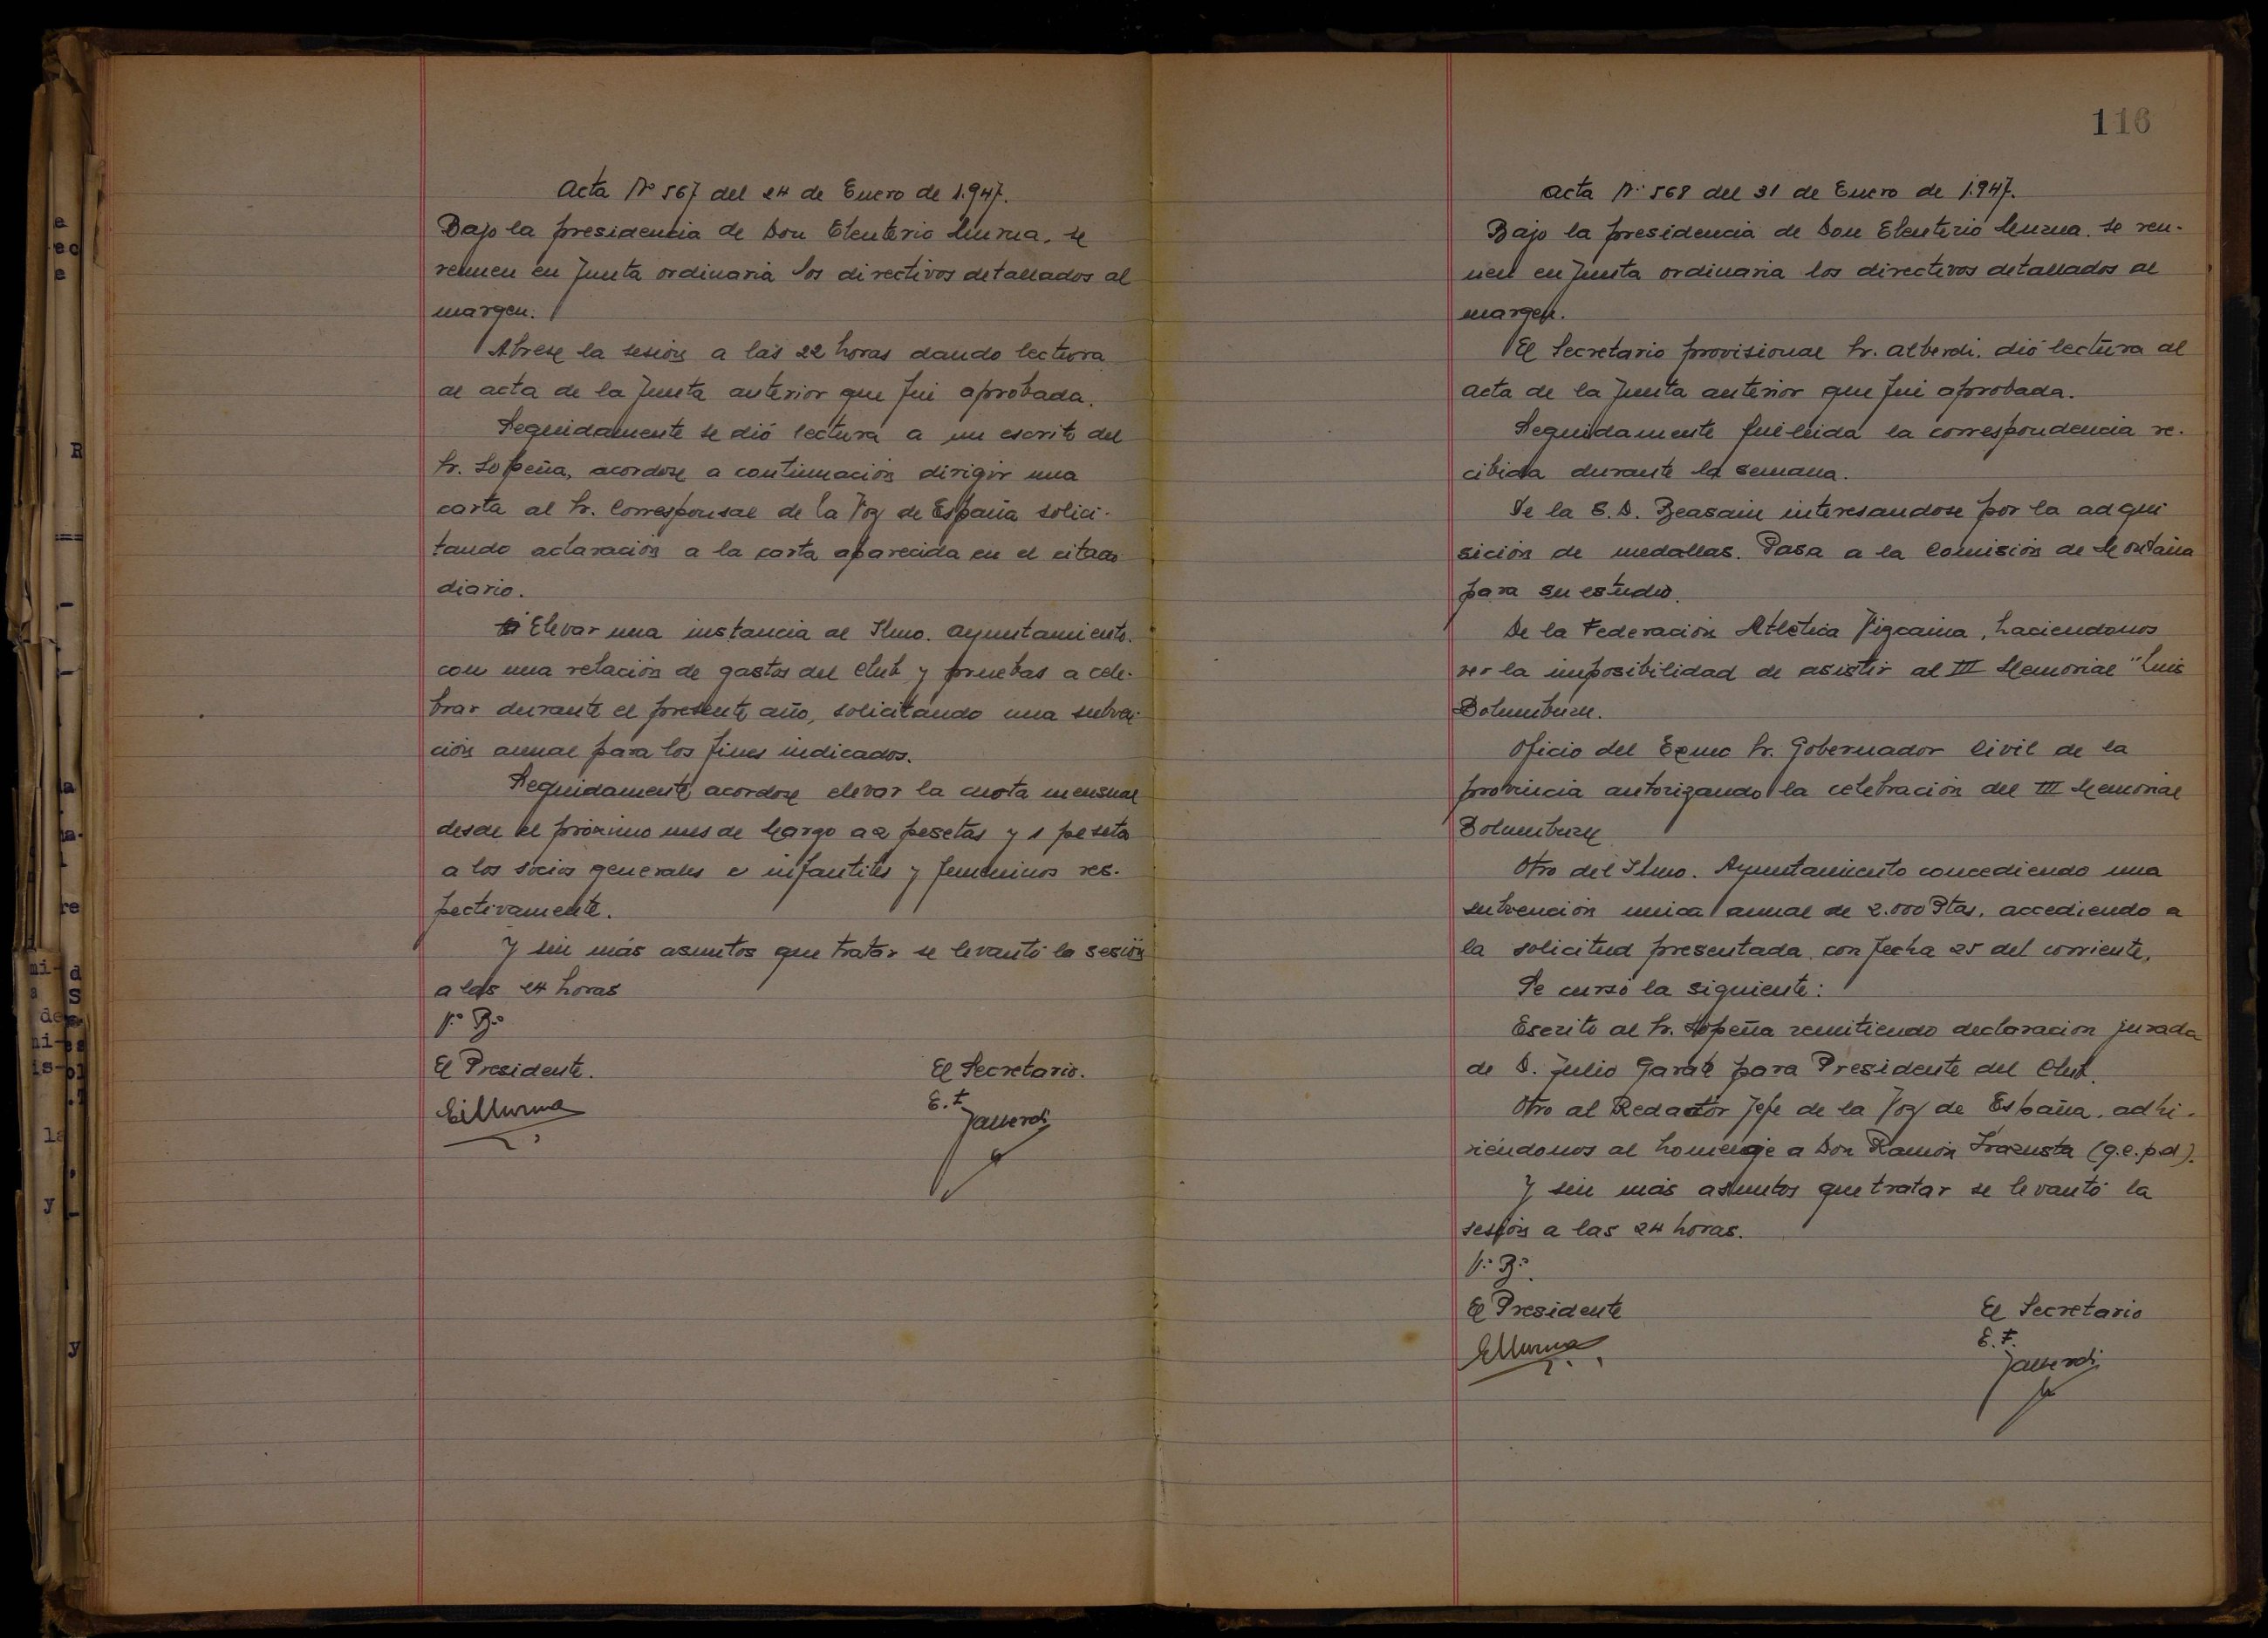 Acta Nº 567 del 24 de Enero de 1.947.
Bajo la presidencia de Don Eleuterio Murua, se
reunen en Junta ordinaria los directivos detallados al
margen.
Abrese la sesión a las 22 horas dando lectura
al acta de la Junta anterior que fué aprobada.
Seguidamente se dió lectura a un escrito del
Sr. Lopeña, acordose a continuación dirigir una
carta al Sr. Corresponsal de la Voz de España solici-
tando aclaración a la carta aparecida en el citado
diario.
Elevar una instancia al Iltmo. Ayuntamiento.
con una relación de gastos del Club y pruebas a cele-
brar durante el presente año, solicitando una subven-
ción anual para los fines indicados.
Seguidamente acordose elevar la cuota mensual
desde el próximo mes de Marzo a 2 pesetas y 1 peseta
a los socios generales e infantiles y femeninos res-
pectivamente.
Y sin más asuntos que tratar se levantó la sesión
a las 24 horas
Vº Bº
El Presidente. El Secretario.
E. Murua E. F.
J Alberdi
116
Acta Nº 568 del 31 de Enero de 1.947.
Bajo la presidencia de Don Eleuterio Murua. se reu-
nen en Junta ordinaria los directivos detallados al
margen.
El Secretario provisional Sr. Alberdi. dió lectura al
acta de la Junta anterior que fué aprobada.
Seguidamente fué leida la correspondencia re-
cibida durante la semana.
De la S.D. Beasain interesandose por la adqui
sición de medallas. Pasa a la Comisión de Montaña
para su estudio.
De la Federación Atlética Vizcaina, haciendonos
ver la imposibilidad de asistir al III Memorial "Luis
Bolumburu.
Oficio del Exmo Sr. Gobernador Civil de la
provincia autorizando la celebración del III Memorial
Bolumburu
Otro del Iltmo. Ayuntamiento concediendo una
subvención unica anual de 2.000 Ptas. accediendo a
la solicitud presentada con fecha 25 del corriente.
Se cursó la siguiente:
Escrito al Sr. Lopeña remitiendo declaracion jurada
de D. Julio Garate para Presidente del Club.
Otro al Redactor Jefe de la Voz de España, adhi-
riéndonos al homenaje a Don Ramón Irazusta (q.e.p.d).
Y sin más asuntos que tratar se levantó la
sesión a las 24 horas.
Vº Bº
El Presidente El Secretario
E Murua E. F.
J Alberdi